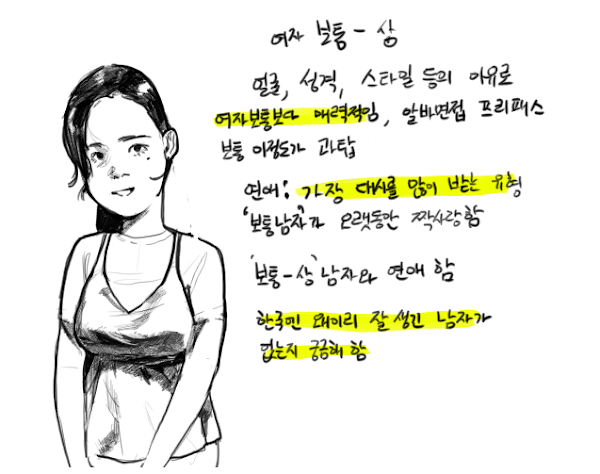 여자 보통 - 상
얼굴, 성격, 스타일 등의 이유로
여자보통보다 매력적임, 알바면접 프리패스
보통 이정도가 과탑
연애: 가장 대시를 많이 받는 유형
'보통남자'가 오랫동안 짝사랑함
'보통-상' 남자와 연애 함
한국엔 왜이리 잘 생긴 남자가
없는지 궁금해 함